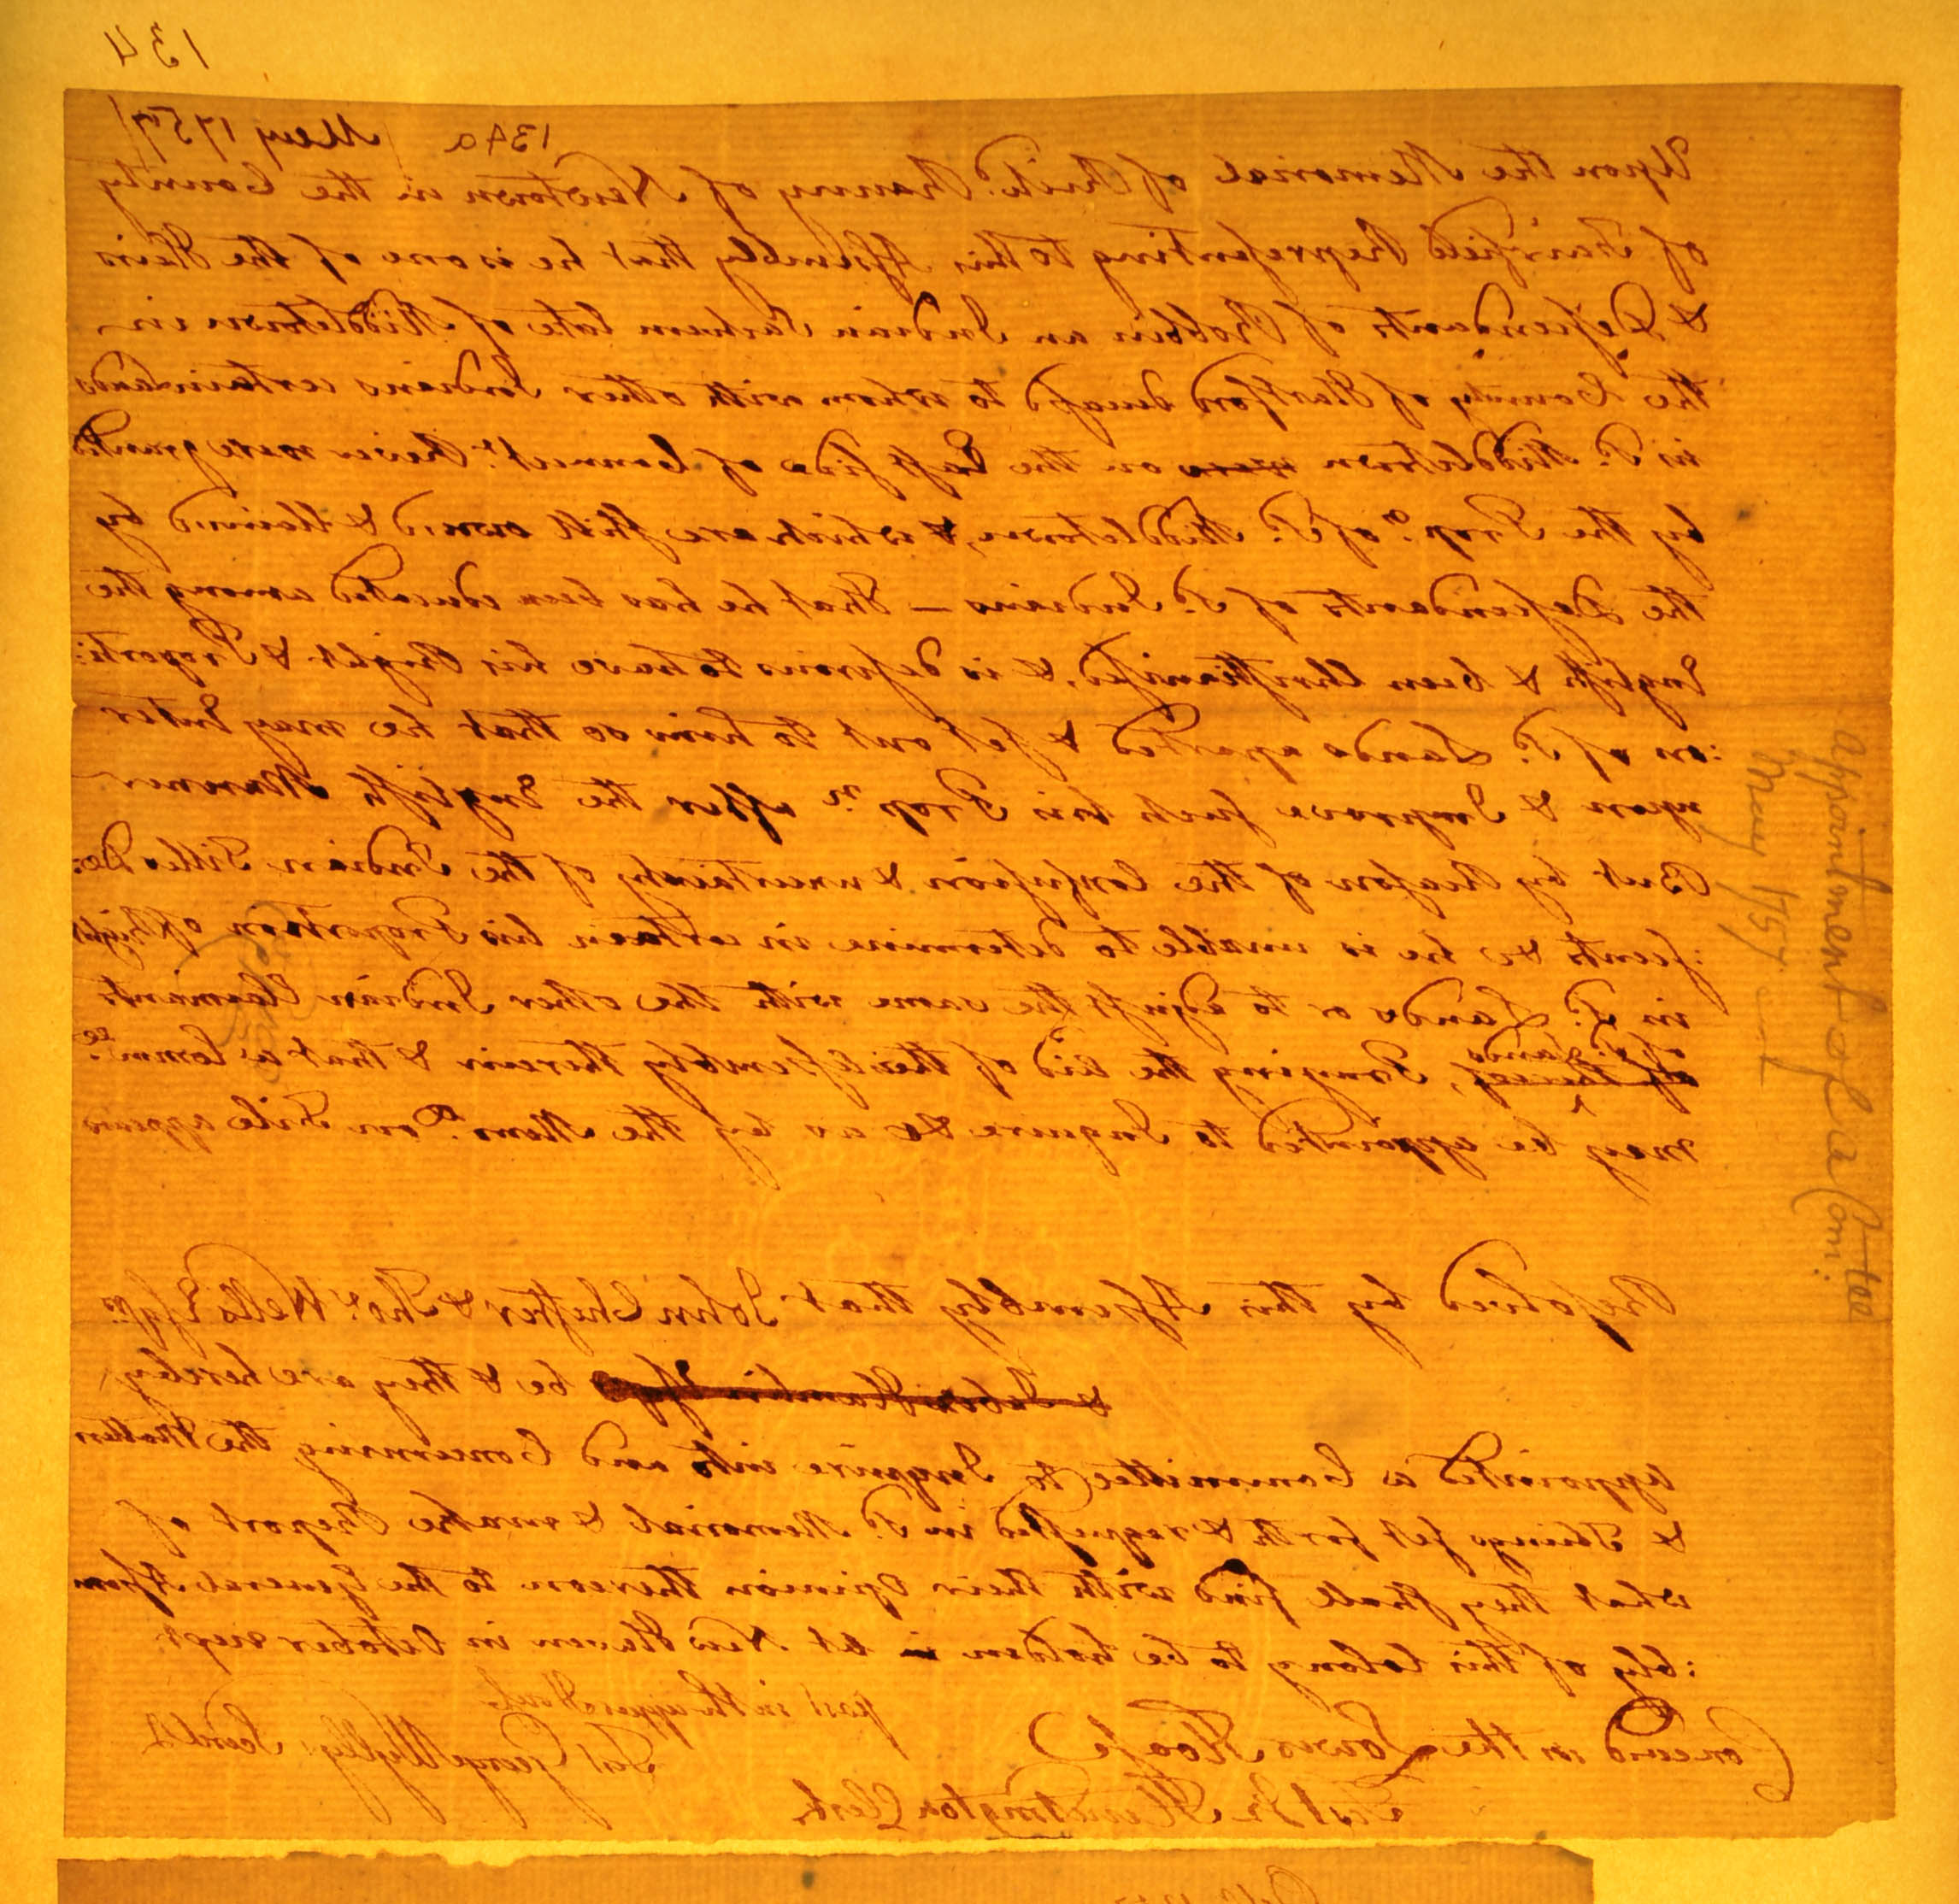 134
134a / May 1757/
Upon the Memorial of Richd. Ranny of Newtown in the County
of Fairfield Representing to this Assembly that he is one of the Heirs
& Descendants of Robbin an Indian Sachem late of Middletown in
the County of Hartford deceasd to whom with other Indians certain lands
in sd. Middletown were on the East side of Connect: River were granted
by the Prop. of sd. Middletown, & which are still ownd & claimd by
the Descendants of sd. Indians — That he has been educated among the
English & been Christianised, & is desirous to have his Right & Proporti:
:on of sd. Lands aparted & set out to him so that he may Enter
upon & Improve such his Propn. after the English Manner
But by Reason of the Confusion & uncertainty of the Indian Titles Des:
:cents &c he is unable to determine in certain his Proportion of Right
in sd. Lands or to adjust the same with the other Indian Claimants
of sd. Lands
Praying the aid of this Assembly therein & that a Commtee.
may be appointed to Inquire &c as by the Meml. on File appears
Resolved by this Assembly that John Chester & Thos. Wells Esqrs.
& Jabez Hamlin Esqr be & they are hereby
appointed a Committee to Inquire into and Concerning the Matters
& Things set forth & requested in sd. Memorial & make Report of
what they shall find with their Opinion thereon to the General Assem
:bly of this Colony to be holden in at New Haven in October next
past in the upper House
Test George Wyllys Secret.
Concurd in the Lower House
Test Jr. Huntington Clerk
appointment of a Com:tee
May 1757